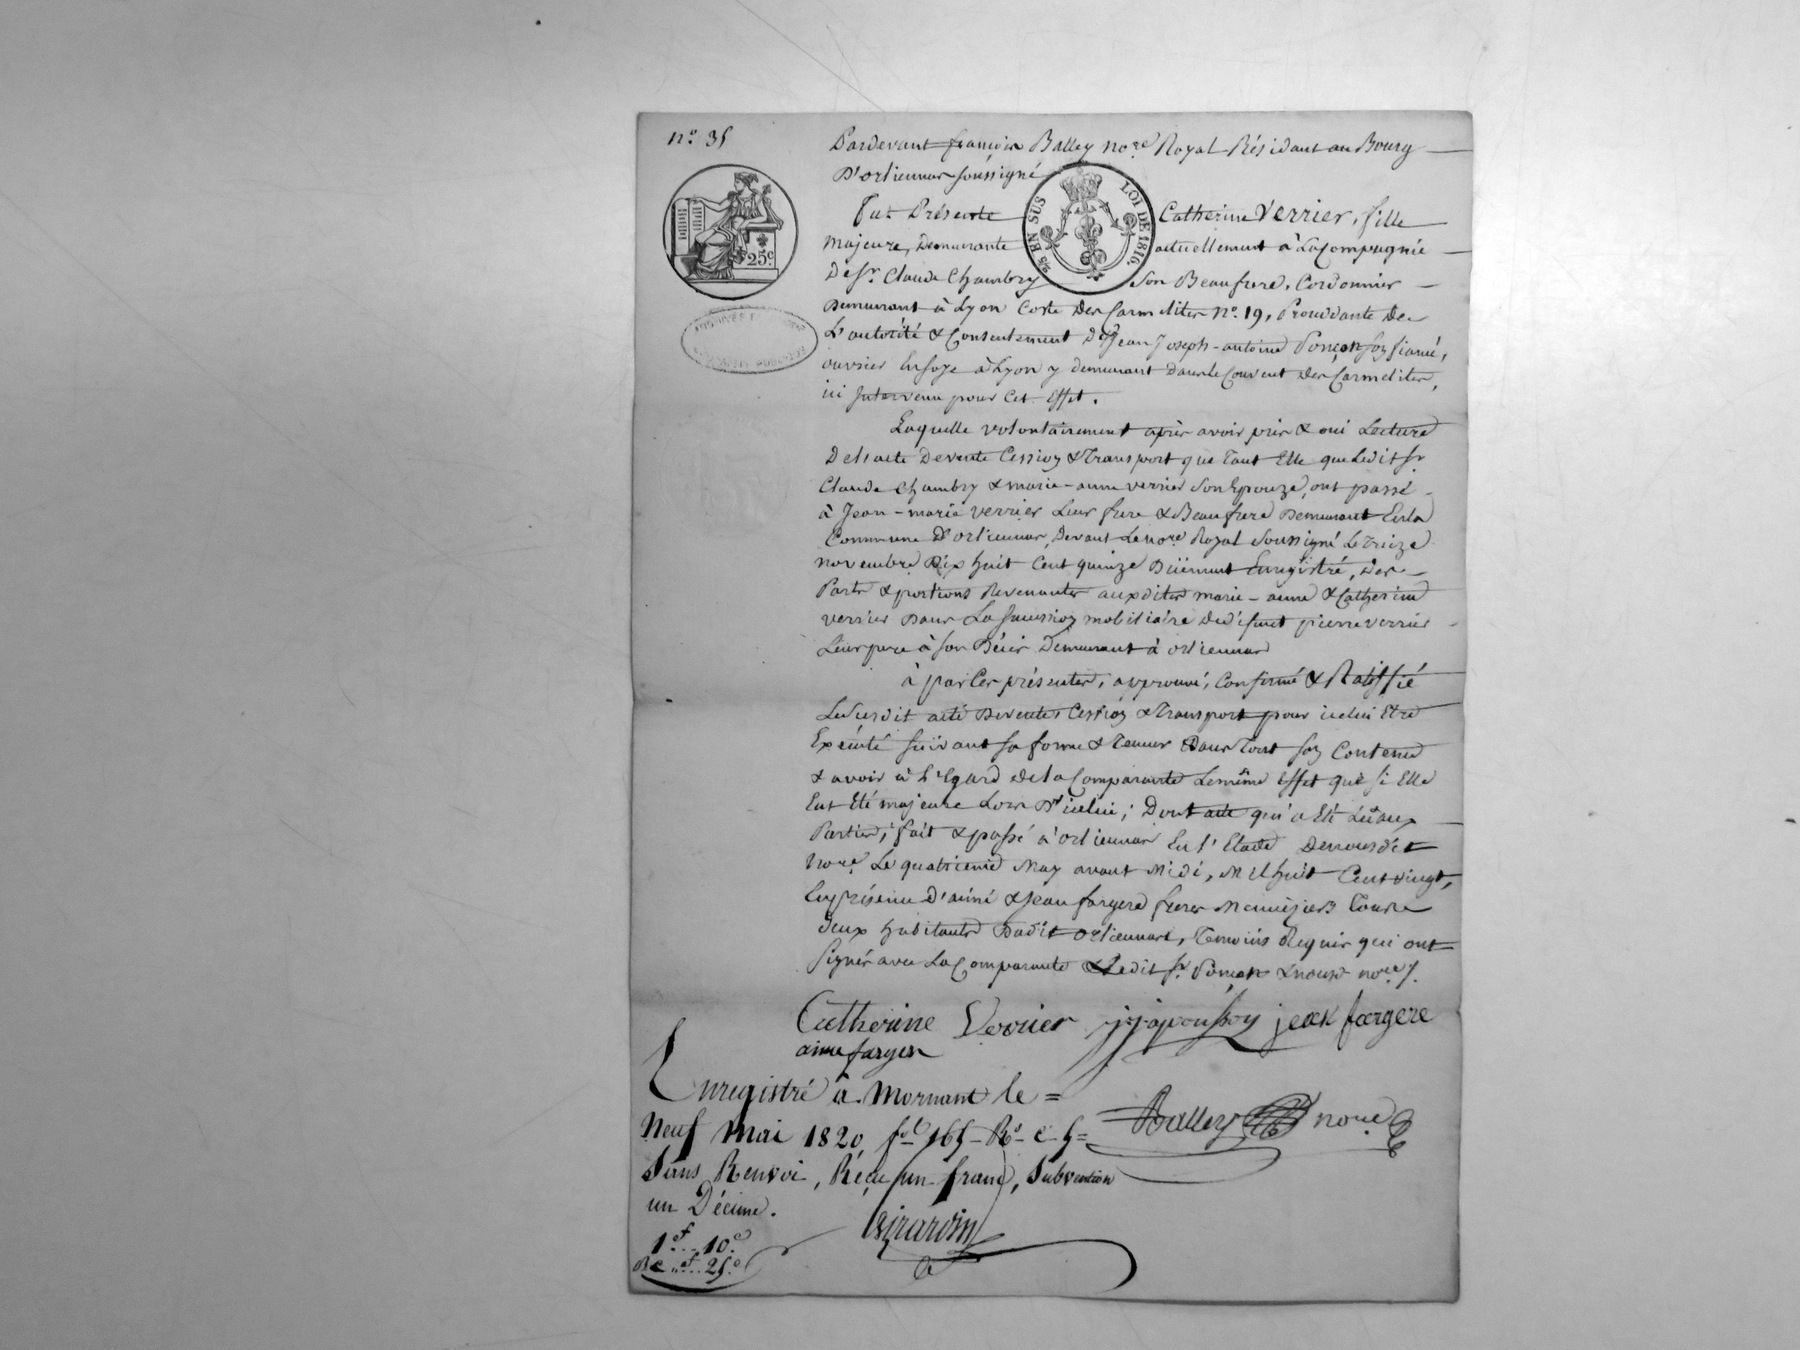 n.º 35
Pardevant françois Balley no.re Royal Résidant au Bourg
D'orliennas soussigné
fut Présente Catherine Verrier, fille
majeure, Demeurante actuellement à La Compagnie
De Sr. Claude Chambry Son Beaufrere, Cordonnier
Demeurant à Lyon Coste Des Carmelites N.º 19, Procédante De
L'autorité & Consentement De Sr Jean Joseph-antoine Ponson son fiancé,
ouvrier En soye à Lyon y demeurant Dans le Couvent Des Carmelites,
ici Intervenu pour Cet Effet.
Laquelle volontairement après avoir pris & oui Lecture
De l'acte De vente Cession & Transport que Tant Elle que Ledit Sr
Claude Chambry & marie-anne verrier Son Epouze, ont passé
à Jean-marie verrier Leur frere & Beaufrere Demeurant En la
Commune D'orliennas, Devant Le no.re Royal Soussigné Le Treize
novembre Dix huit Cent quinze Düement Enregistré, Des
Parts & portions Revenantes auxdites marie-anne & Catherine
verrier Dans La Succession mobiliaire De défunt pierre verrier
Leur pere à Son Décès Demeurant à orliennas
à par Ces présentes, approuvé, Confirmé & Ratiffié
Le Susdit acte De ventes Cession & Transport pour icelui Etre
Exécuté Suivant Sa forme & Teneur Dans Tout Son Contenu
& avoir à l'Egard De la Comparante Le même Effet que Si Elle
Eut Eté majeure Lors D'icelui; Dont acte qui a Eté Lu aux
Parties, fait & passé à Orliennas En l'Etude De nousdit
No.re Le quatrieme May avant Midi, Mil huit Cent vingt,
En présence D'aimé & Jean fargere freres Menuiziers Tous
deux habitants Dudit Orliennas, Temoins Requis qui ont
Signés avec La Comparante & Ledit Sr. Ponson & nousd no.re /.
Catherine Verrier j.j.a ponsson jean fargere
aime fargere
Enregistré à Mornant le =
Neuf Mai 1820, f.º 165 R.º c. 5 =
Sans Renvoi, Reçu un franc, Subvention
un Décime.
Balley no.re
Girardin
1f.. 10c
25c
25 c.
25 EN SUS
LOI DE 1816.